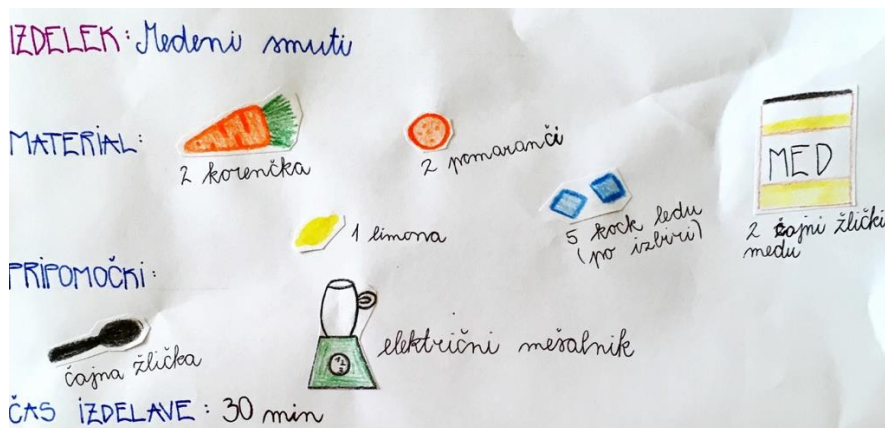 IZDELEK: Medeni smuti
MATERIAL:
2 korenčka
2 pomaranči
1 limona
5 kock ledu
(po izbiri)
MED
2 čajni žlički
medu
PRIPOMOČKI:
čajna žlička
električni mešalnik
ČAS IZDELAVE: 30 min